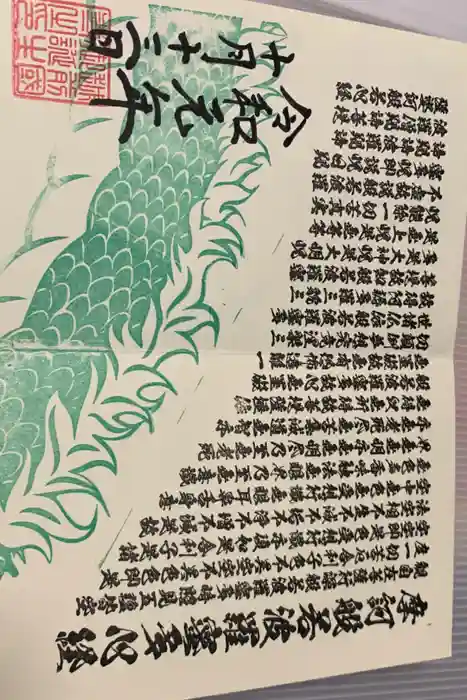 摩訶般若波羅蜜多心経
観自在菩薩行深般若波羅蜜多時照見五蘊皆空
度一切苦厄舎利子色不異空空不異色色即是
空空即是色受想行識亦復如是舎利子是諸
法空相不生不滅不垢不浄不増不減是故
空中無色無受想行識無眼耳鼻舌身意
無色声香味触法無眼界乃至無意識
界無無明亦無無明尽乃至無老死
亦無老死尽無苦集滅道無智亦
無得以無所得故菩提薩埵依
般若波羅蜜多故心無罣礙
無罣礙故無有恐怖遠離一
切顛倒夢想究竟涅槃三
世諸仏依般若波羅蜜多
故得阿耨多羅三藐三
菩提故知般若波羅蜜
多是大神呪是大明呪
是無上呪是無等等
呪能除一切苦真実
不虚故説般若波羅
蜜多呪即説呪曰
羯諦羯諦波羅羯諦
波羅僧羯諦菩提
薩婆訶般若心経
令和元年
十月十三日